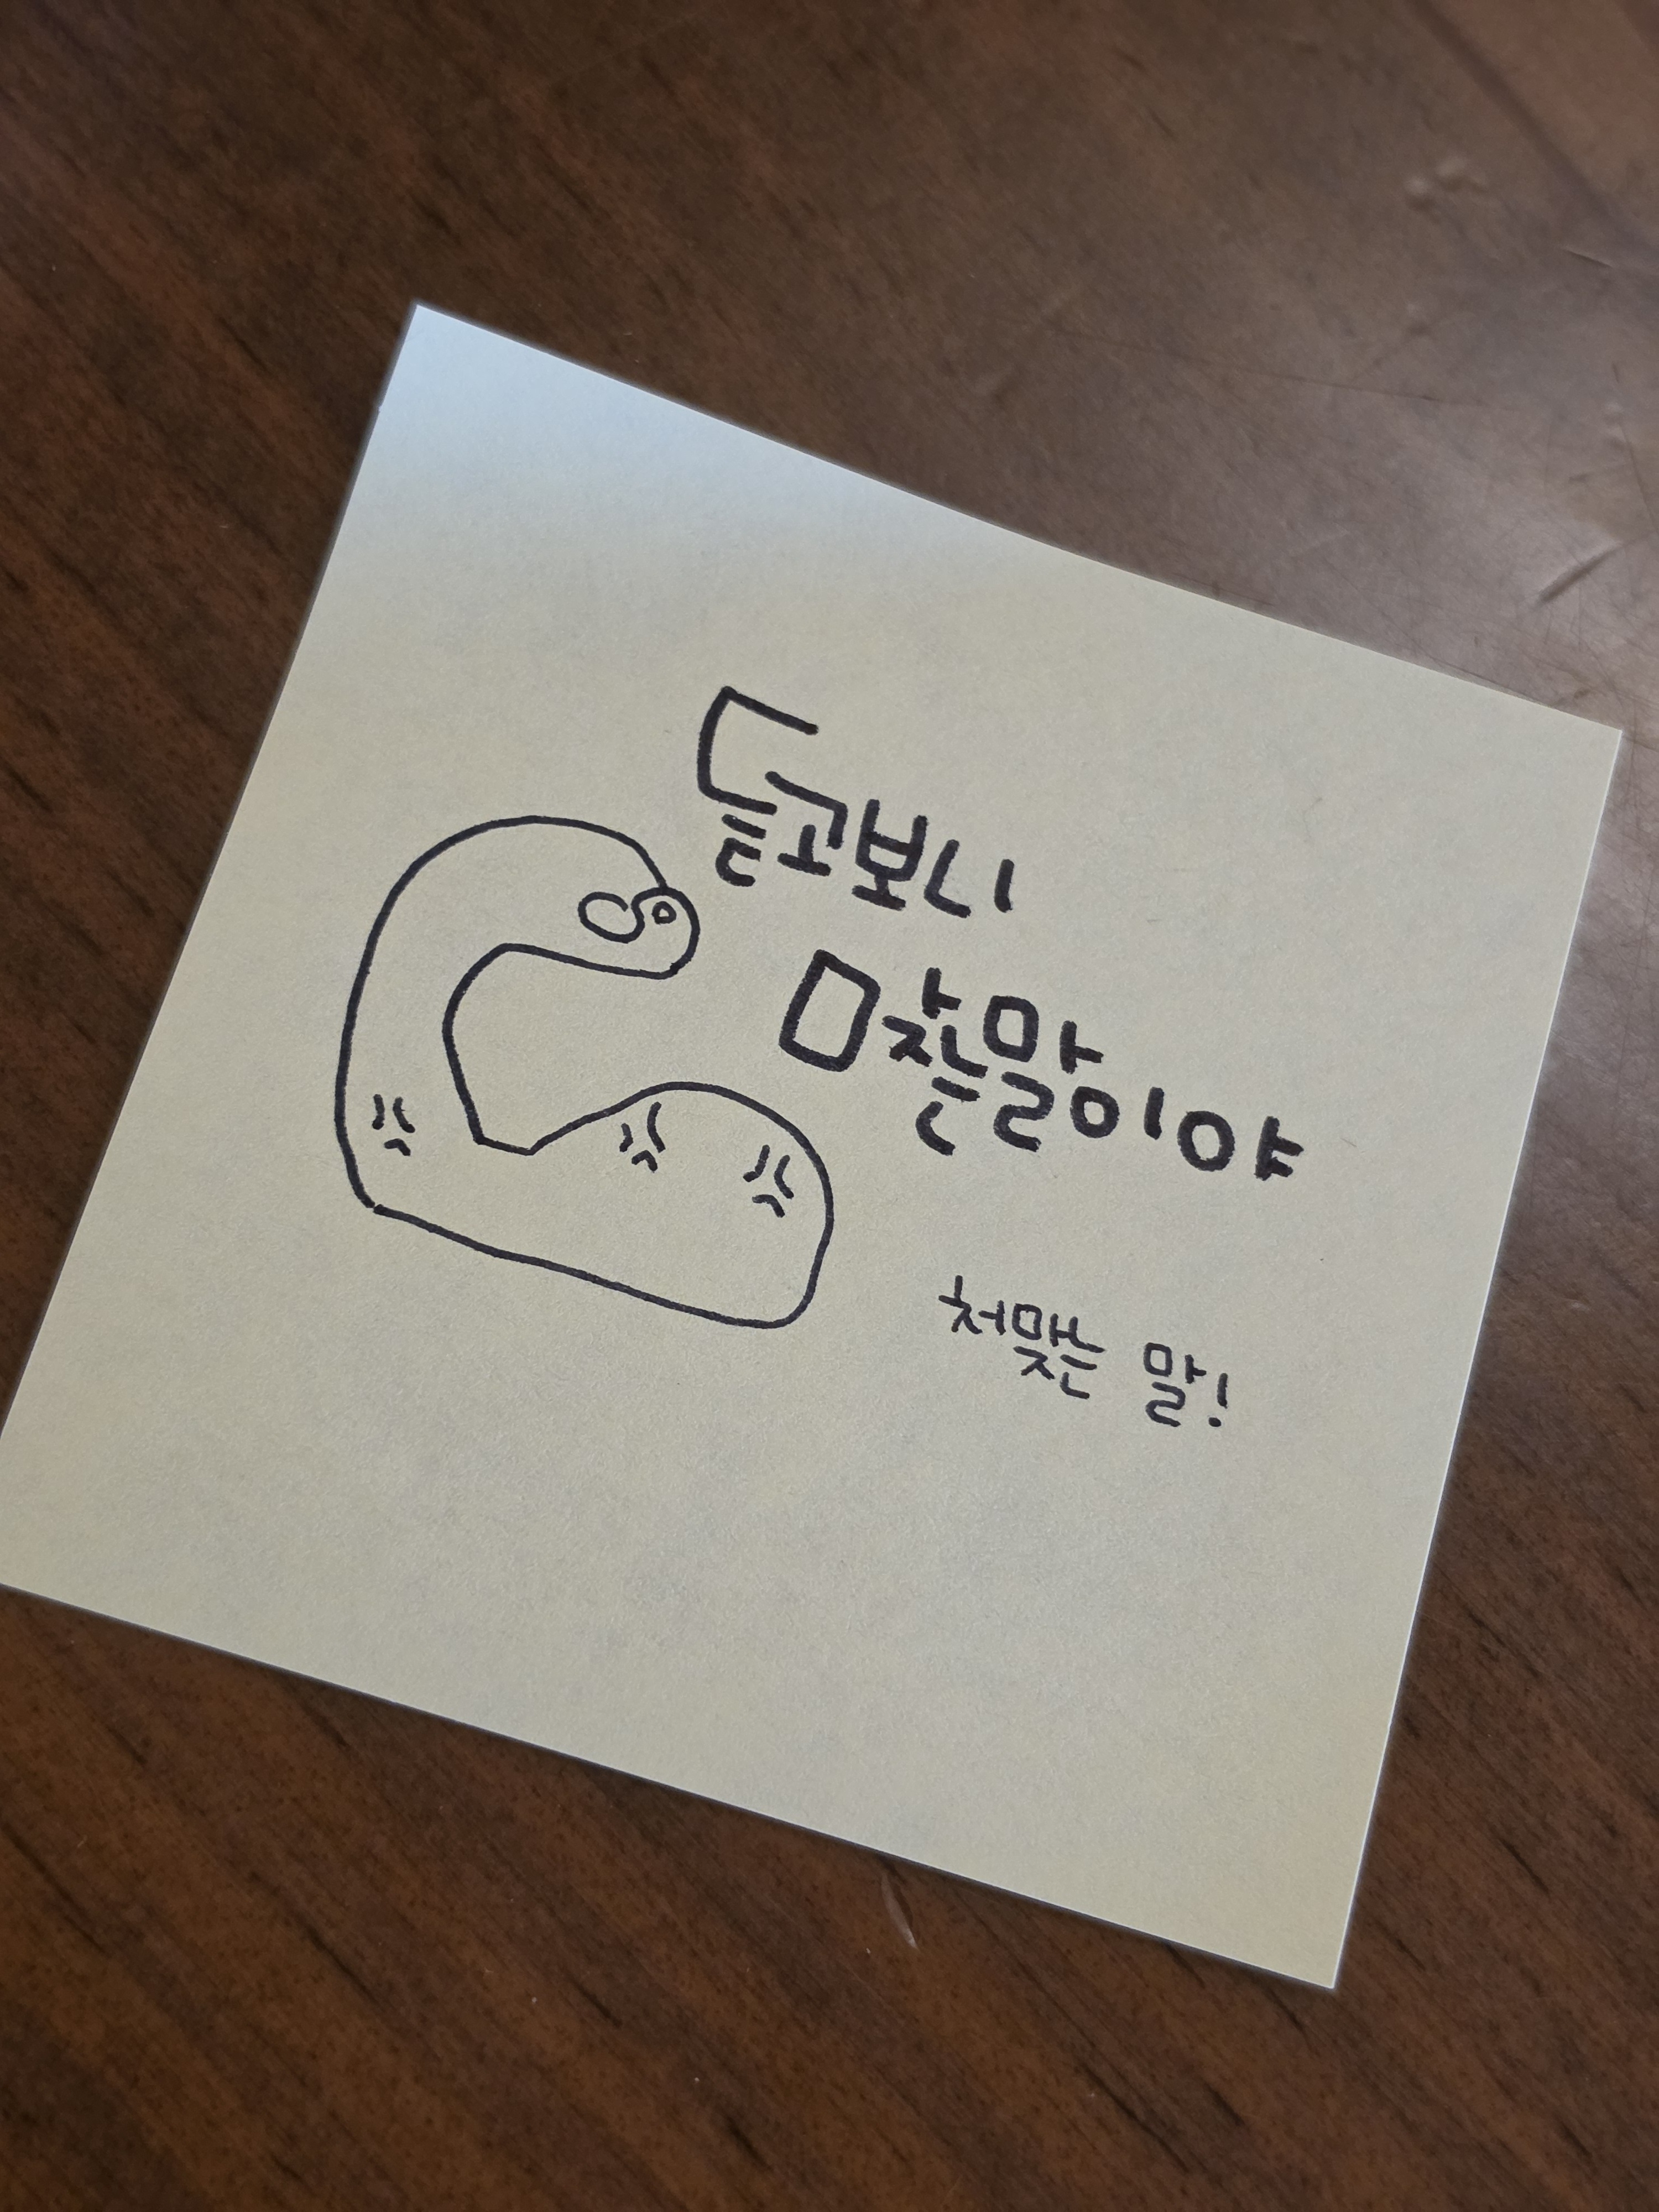 듣고보니
맞는말이야
처맞는 말!